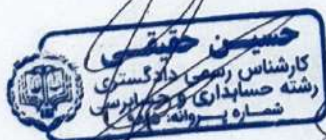 حسیـن حقیقـی
کارشناس رسمی دادگستری
رشته حسابداری و حسابرسی
شماره پـروانه: